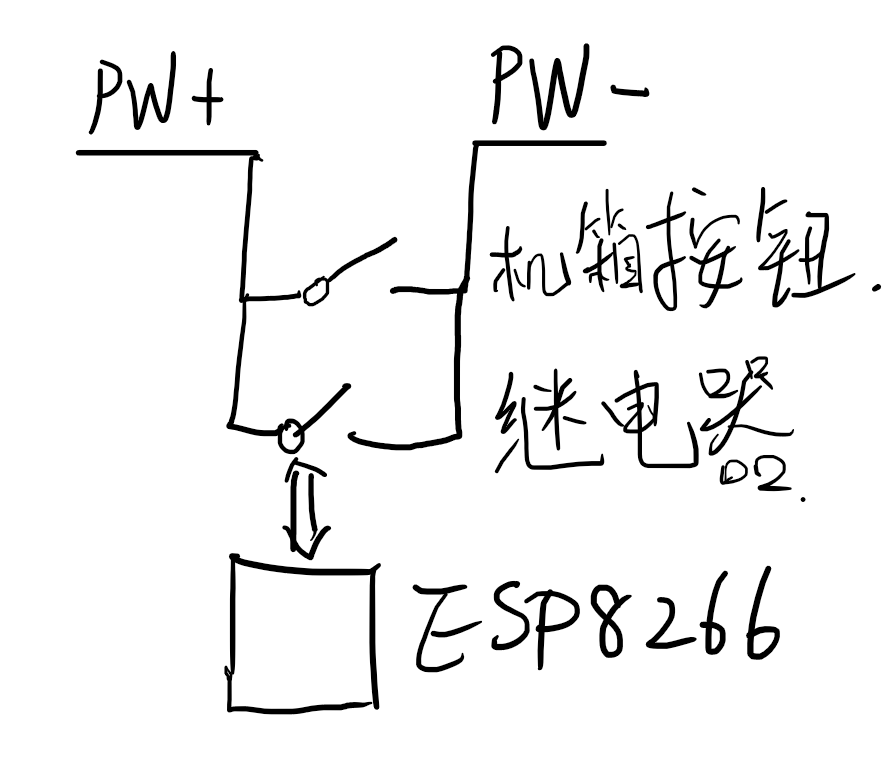 PW+
PW-
机箱按钮.
继电器.
ESP8266